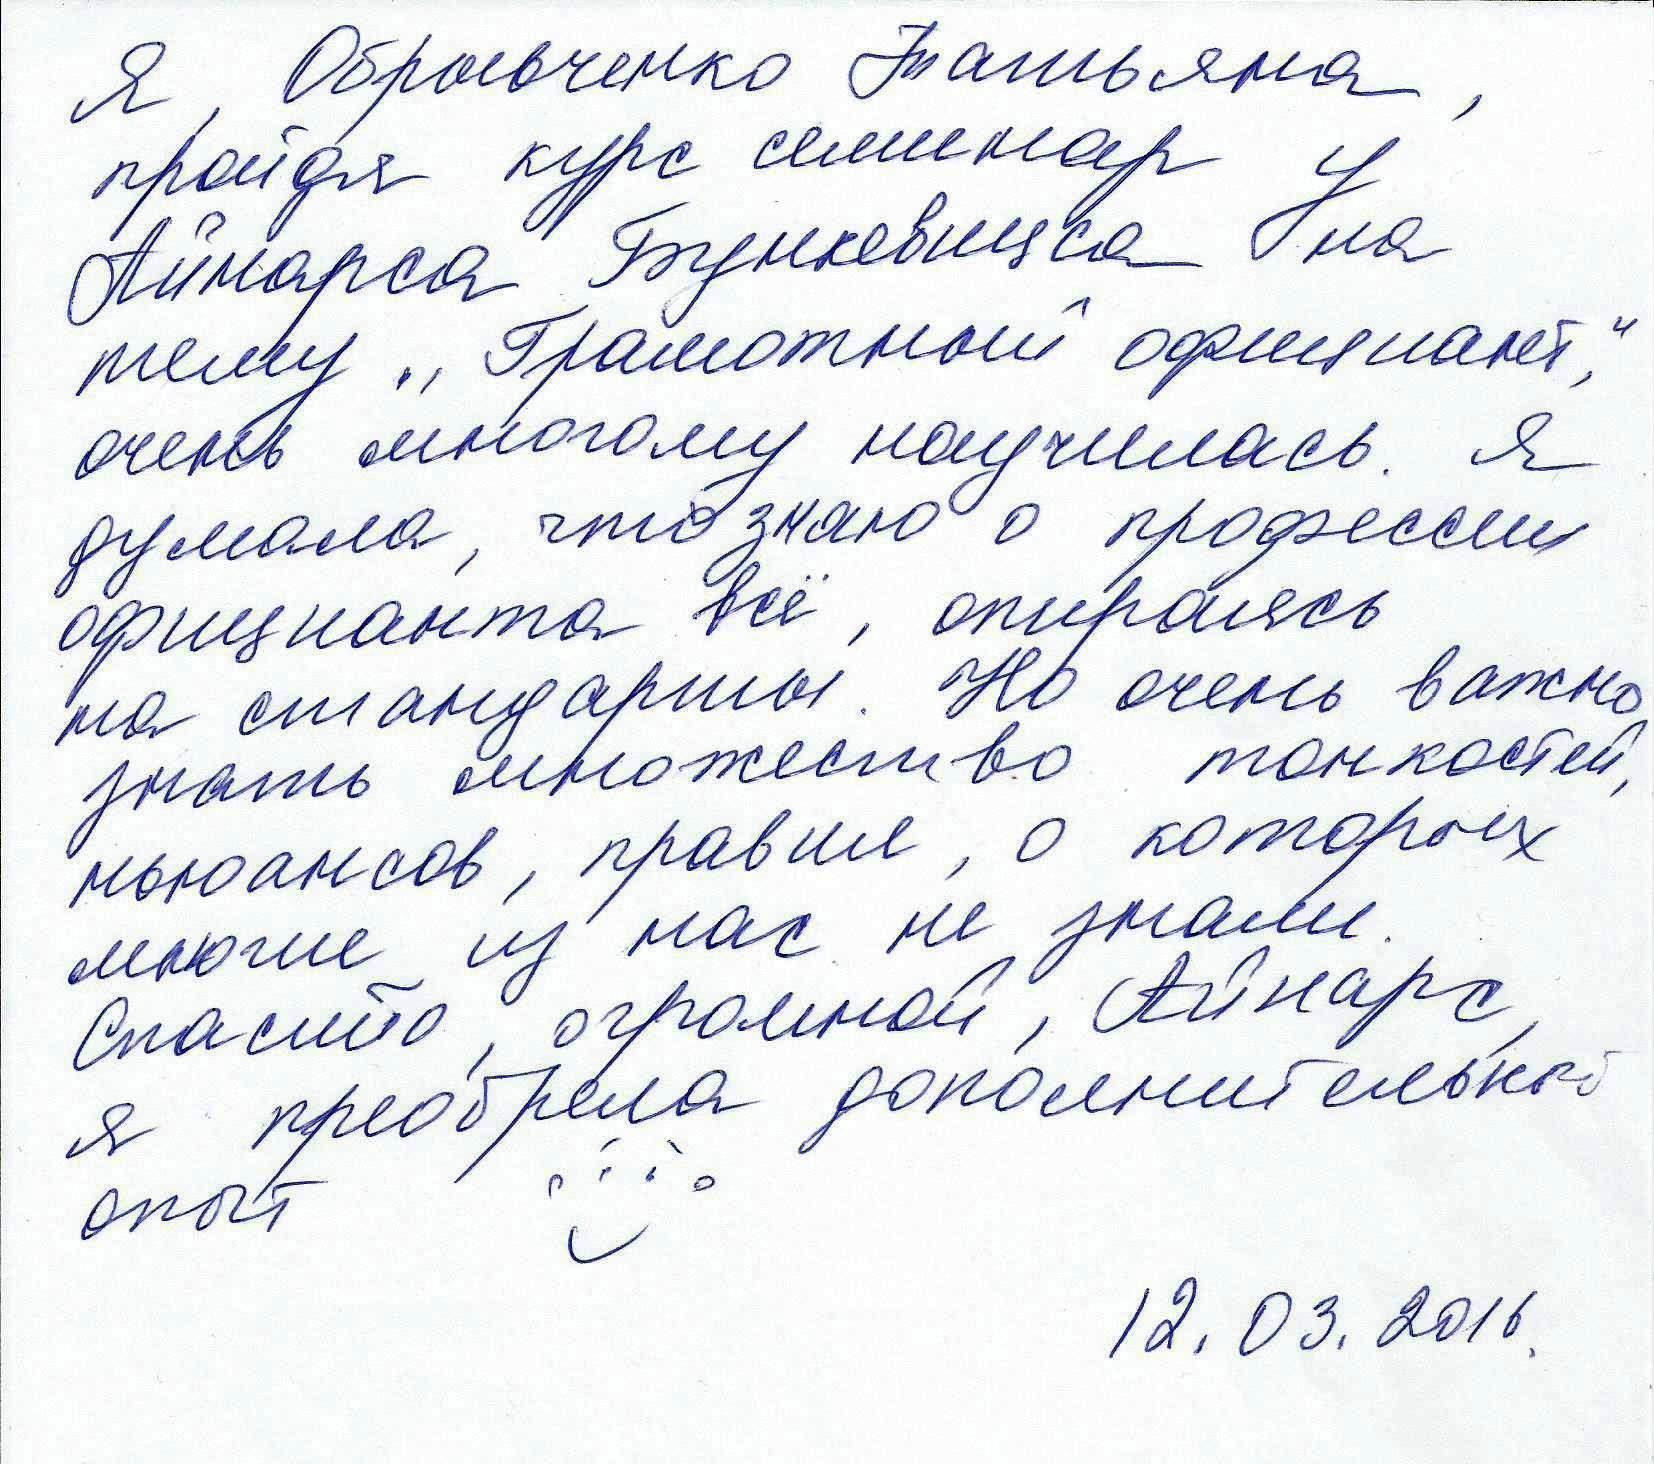 Я, Обрывченко Татьяна,
пройдя курс семинар у
Айнарса Бункевицса на
тему „Грамотный официант,"
очень многому научилась. Я
думала, что знаю о профессии
официанта всё, опираясь
на стандарты. Но очень важно
знать множество тонкостей,
ньюансов, правил, о которых
многие из нас не знали.
Спасибо, огромной, Айнарс,
я преобрела дополнительный
опыт
12.03.2016.